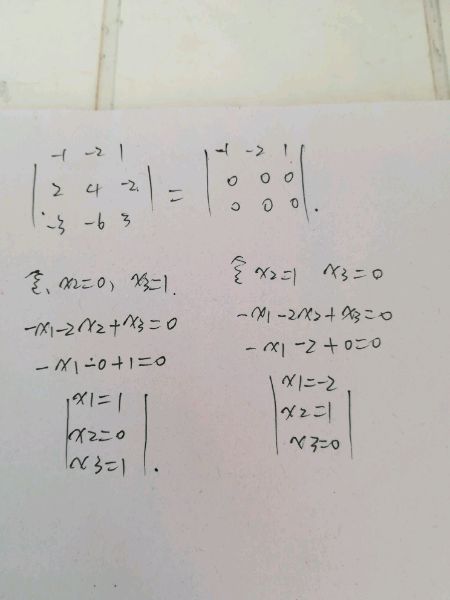 -1 -2 1 -1 -2 1
2 4 -2 = 0 0 0
-3 -6 3 0 0 0 .
x2=0, x3=1.
-x1-2x2+x3=0
-x1-0+1=0
x1=1
x2=0
x3=1 .
x2=1 x3=0
-x1-2x2+x3=0
-x1-2+0=0
x1=-2
x2=1
x3=0